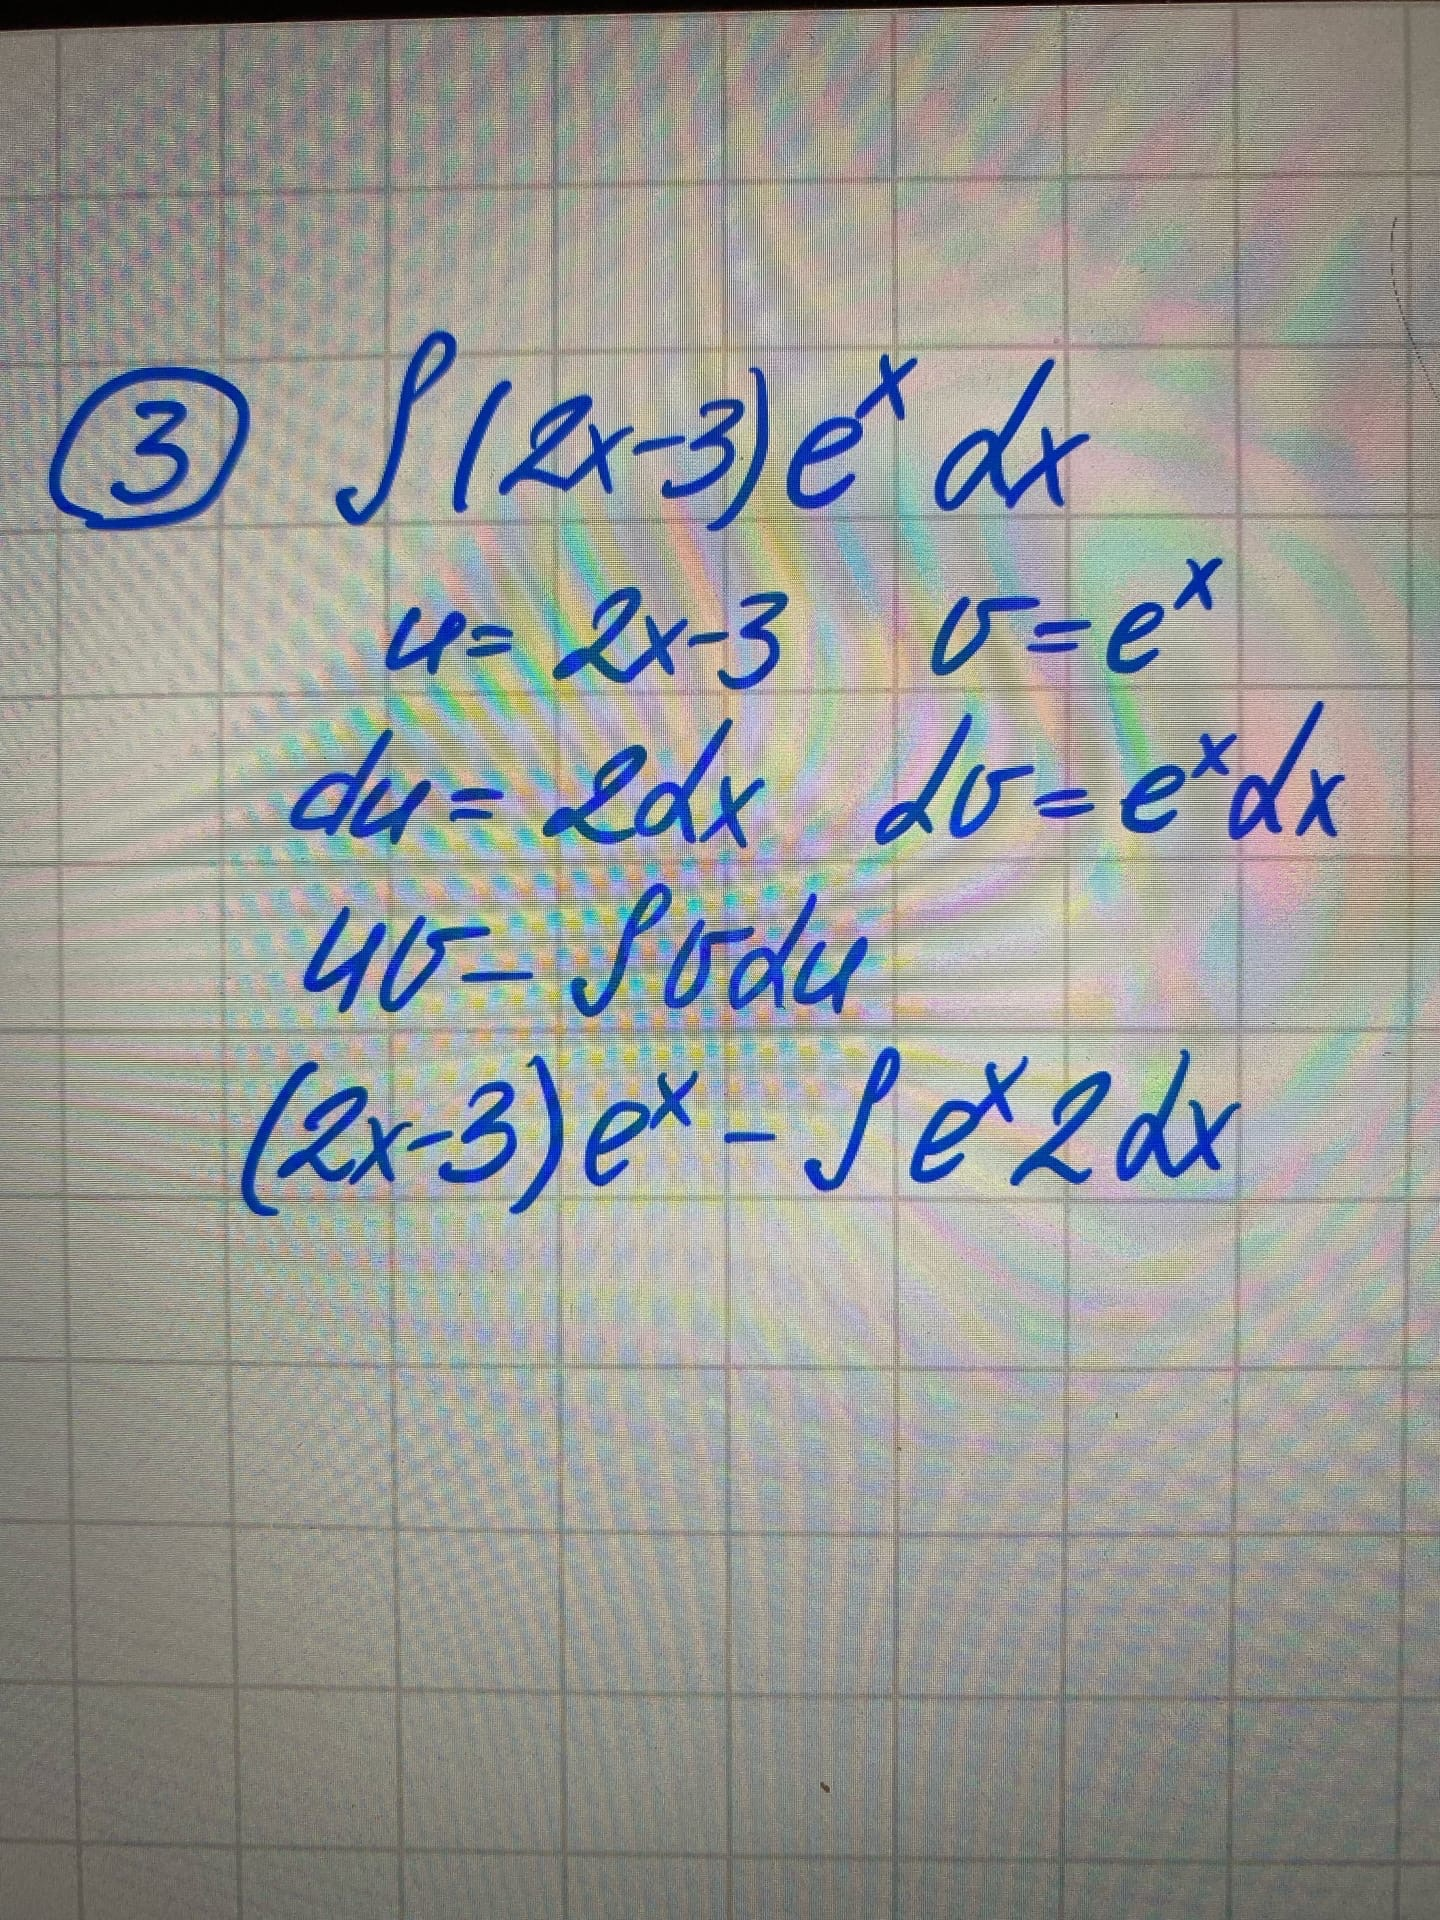 ③ ∫(2x-3)eˣ dx
u= 2x-3 v=eˣ
du= 2dx dv=eˣdx
uv- ∫vdu
(2x-3)eˣ - ∫eˣ2dx